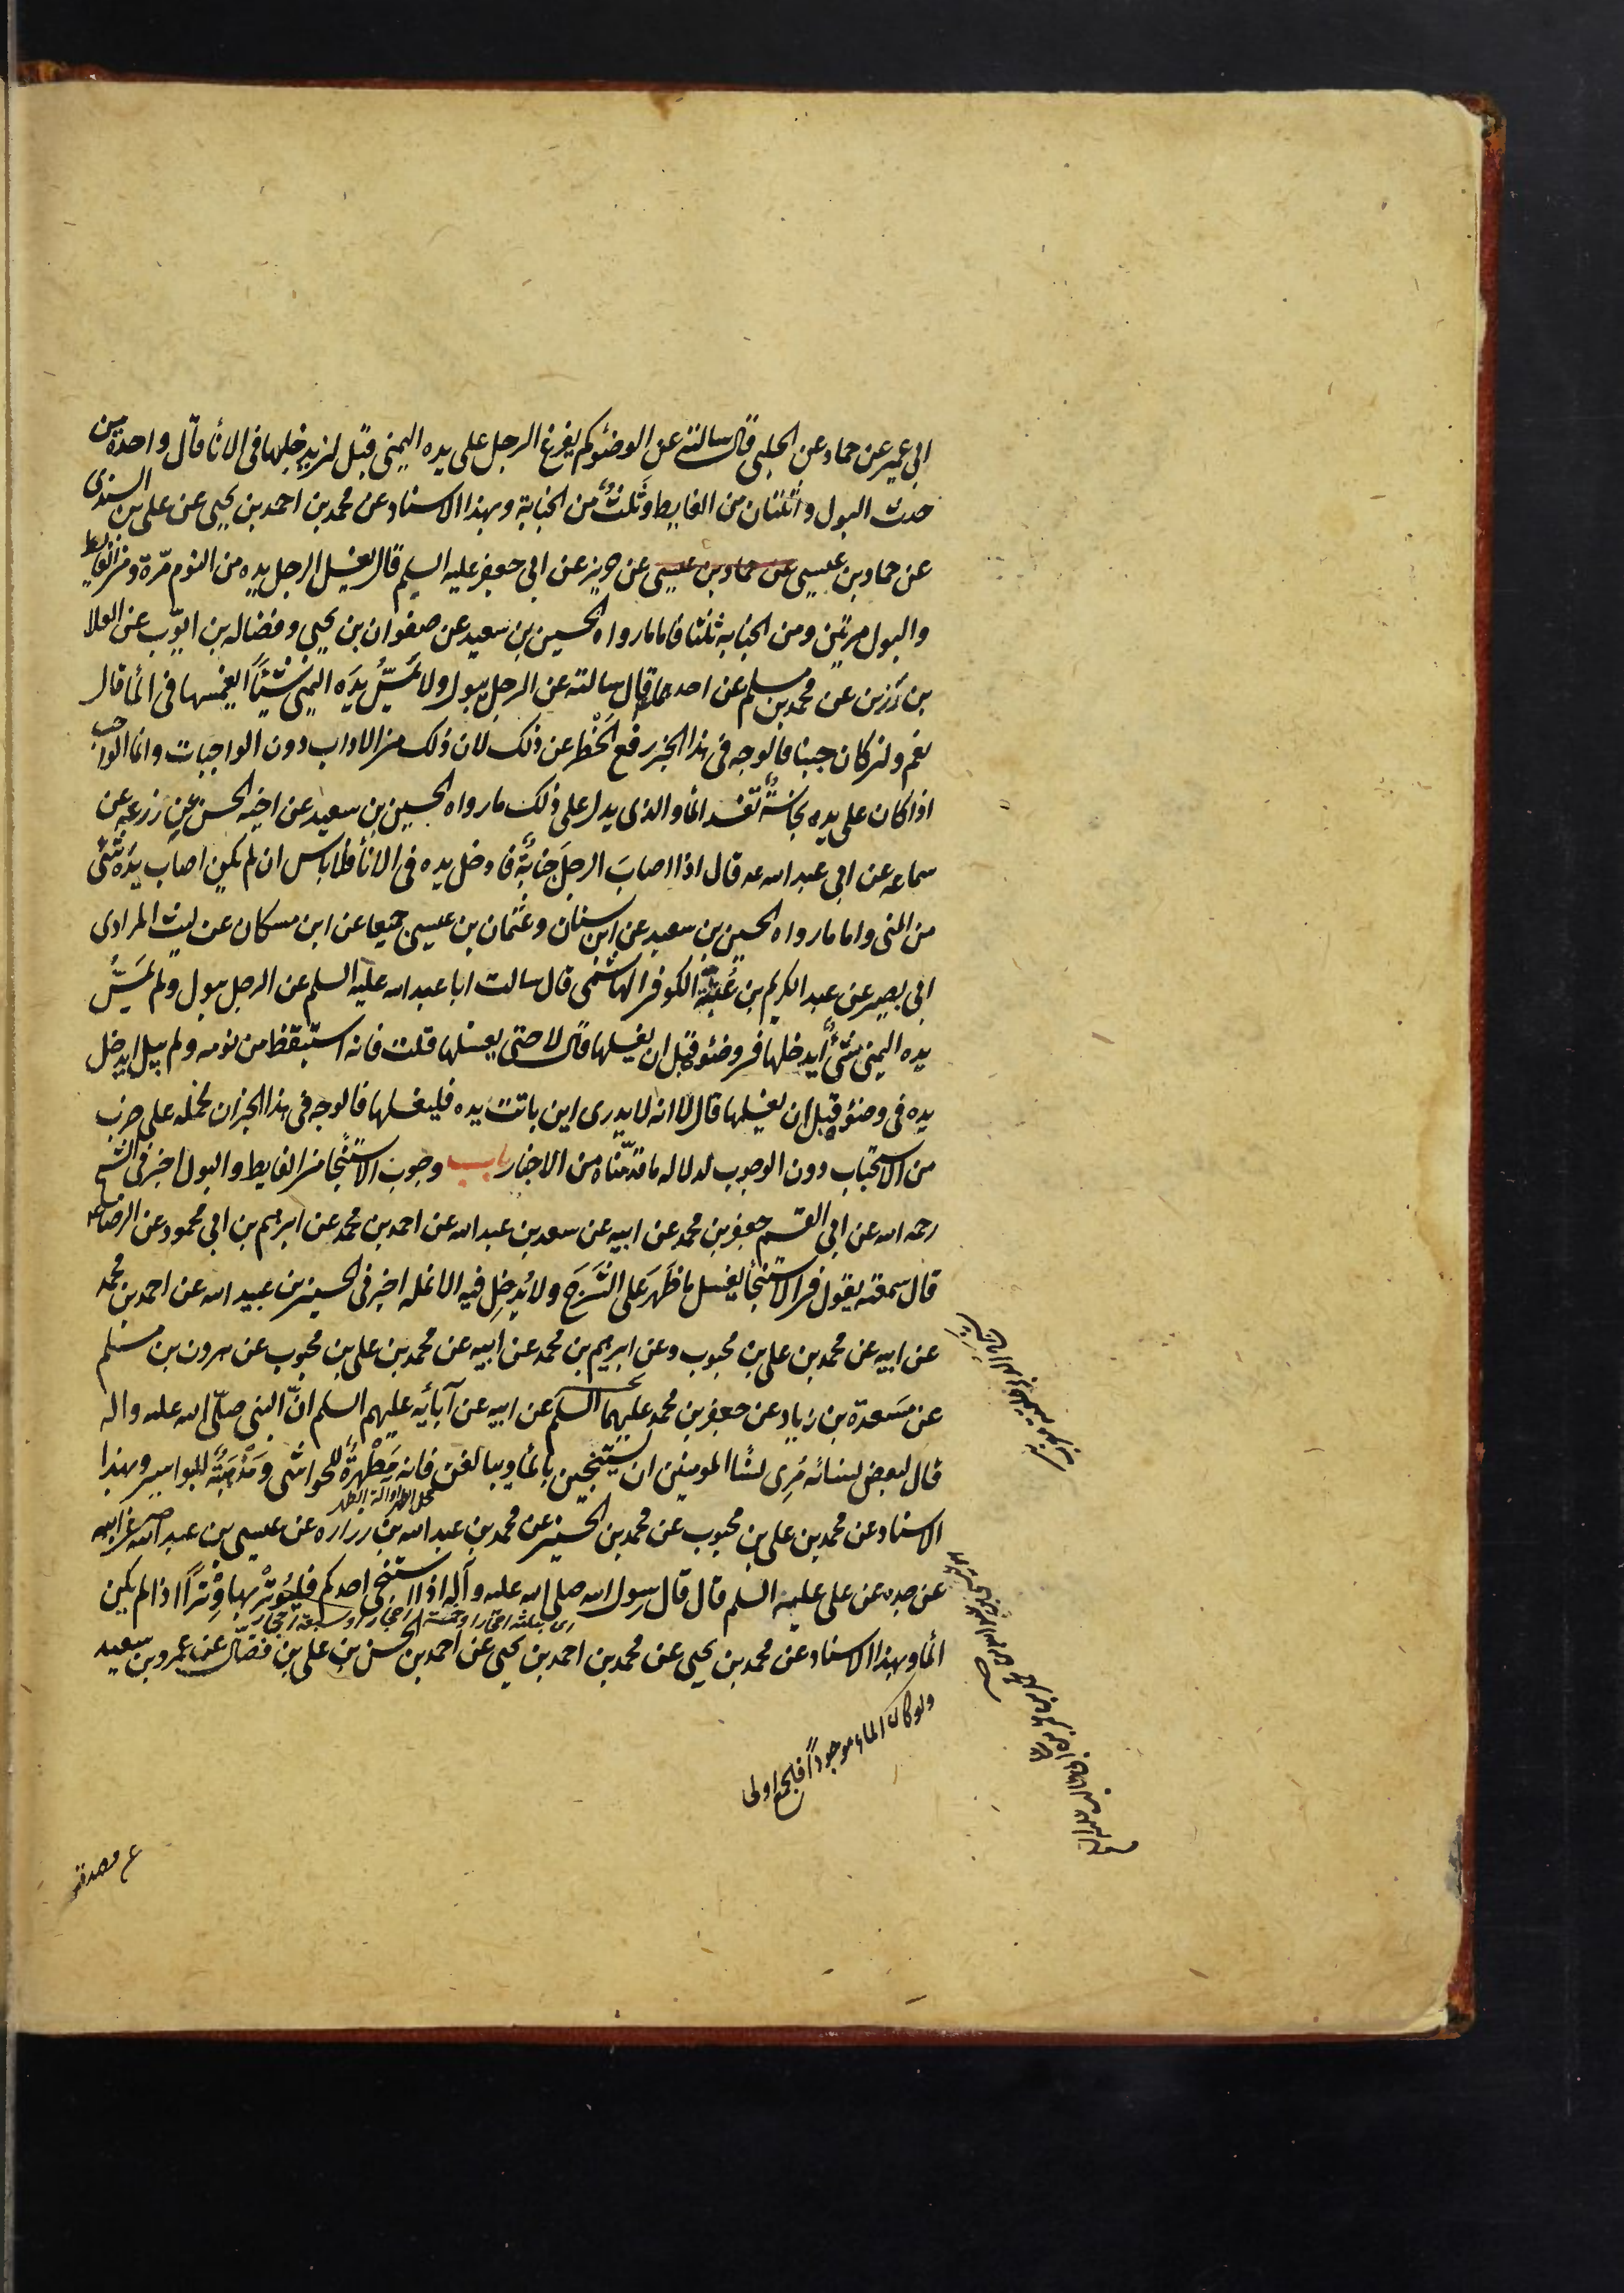 ابى عمير عن حماد عن الحلبى قال سالته عن الوضوء كم يفرغ الرجل على يده اليمنى قبل ان يدخلها فى الاناء قال واحدة من
حدث البول واثنتان من الغايط وثلث من الجنابة وبهذا الاسناد عن محمد بن احمد بن يحيى عن على بن السندى
عن حماد بن عيسى عن حماد بن عيسى عن حريز عن ابى جعفر عليه السلم قال يغسل الرجل يده من النوم مرّة ومن الغايط
والبول مرتين ومن الجنابه ثلثا فاما ما رواه الحسين بن سعيد عن صفوان بن يحيى وفضاله بن ايّوب عن العلا
بن رزين عن محمد بن مسلم عن احدهما قال سالته عن الرجل يبول ولا تمسّ يدَه اليمنى شيئاً ايغمسها فى الماء قال
نعم ولن كان جنبا فالوجه فى هذا الخبر رفع الحَظْر عن ذلك لان ذلك من الاداب دون الواجبات وانما الواجب
اذا كان على يده نجاسةٌ تفسد الماء والذى يدل على ذلك ما رواه الحسين بن سعيد عن اخيه الحسن عن زرعه عن
سماعه عن ابى عبد الله ع قال اذا اصابَ الرجلَ جنابةٌ فادخل يده فى الاناء فلا باس ان لم يكن اصاب يدَه شئ
من المنى واما ما رواه الحسين بن سعيد عن ابن سنان وعثمان بن عيسى جميعا عن ابن مسكان عن ليث المرادى
ابى بصير عن عبد الكريم بن عُتبة الكوفى الهاشمى قال سالت ابا عبد الله عليه السلم عن الرجل يبول ولم يَمَسَّ
يده اليمنى شئٌ أيدخلها فى وضوئه قبل ان يغسلها قال لا حتى يغسلها قلت فانه استيقظ من نومه ولم يبل ايدخل
يده فى وضوئه قبل ان يغسلها قال لا انه لا يدرى اين باتت يده فليغسلها فالوجه فى هذا الخبر ان نحمله على ضرب
من الاستحباب دون الوجوب لدلاله ما قدّمناه من الاخبار باب وجوب الاستنجا من الغايط والبول اخبرنى الشيخ
رحمه الله عن ابى القسم جعفر بن محمد عن ابيه عن سعد بن عبد الله عن احمد بن محمد عن ابرهيم بن ابى محمود عن الرضا ع
قال سمعته يقول فى الاستنجاء يغسل ما ظَهَرَ عَلى الشَّرَجَ ولا يُدخِل فيه الانمله اخبرنى الحسين بن عبيد الله عن احمد بن محمد
عن ابيه عن محمد بن على بن محبوب وعن ابرهيم بن محمد عن ابيه عن محمد بن على بن محبوب عن هرون بن مسلم
عن مَسعدة بن زياد عن جعفر بن محمد عليهما السلم عن ابيه عن آبائه عليهم السلم انّ النبى صلّى الله عليه واله
قال لبعض نسائه مُرِى نساء المومنين ان يستنجين بالماء ويبالغن فانه مَطْهَرةٌ للحواشى ومَذْهَبَةٌ للبواسير وبهذا
الاسناد عن محمد بن على بن محبوب عن محمد بن الحسين عن محمد بن عبد الله بن زراره عن عيسى بن عبد الله عن ابيه
عن جده عن على عليه السلم قال قال رسول الله صلى الله عليه وآله اذا استنجى احدكم فليُوتر بها وِتْراً اذا لم يكن
اى بثلثة احجار او خمسة احجار او سبعة احجار
الماء وبهذا الاسناد عن محمد بن يحيى عن محمد بن احمد بن يحيى عن احمد بن الحسن بن على بن فضّال عن عمرو بن سعيد
ولو كان الماء موجوداً فالجمع اولى
عن مصدق